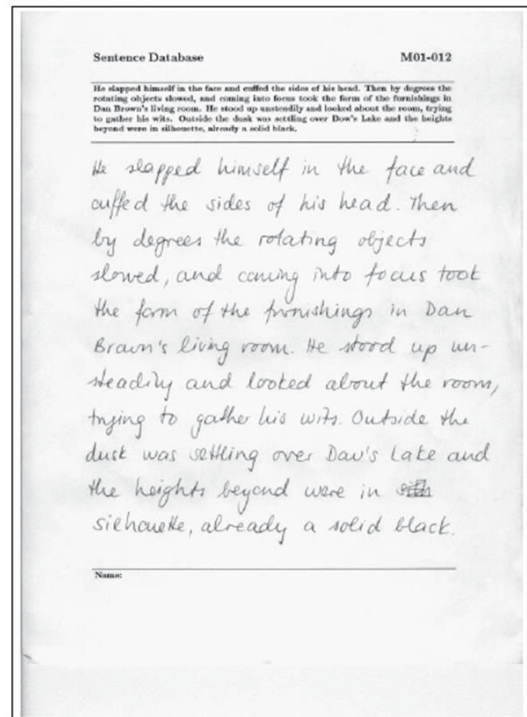 Sentence Database M01-012
He slapped himself in the face and cuffed the sides of his head. Then by degrees the
rotating objects slowed, and coming into focus took the form of the furnishings in
Dan Brown's living room. He stood up unsteadily and looked about the room, trying
to gather his wits. Outside the dusk was settling over Dow's Lake and the heights
beyond were in silhouette, already a solid black.
He slapped himself in the face and
cuffed the sides of his head. Then
by degrees the rotating objects
slowed, and coming into focus took
the form of the furnishings in Dan
Brown's living room. He stood up un-
steadily and looked about the room,
trying to gather his wits. Outside the
dusk was settling over Dow's Lake and
the heights beyond were in
silhouette, already a solid black.
Name: